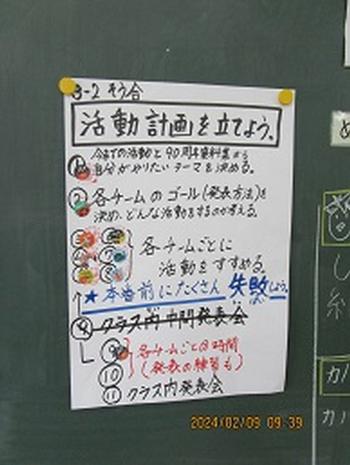 3-2 そう合
活動計画を立てよう。
① 今までの活動と90周年資料集から
自分がやりたいテーマを決める。
② 各チームのゴール(発表方法)を
決め、どんな活動をするのか考える。
各チームごとに
活動をすすめる。
★本番前にたくさん失敗しよう。
⑨ クラス内中間発表会
⑨ 各チームごとの時間
⑩ (発表の練習も)
⑪ クラス内発表会
2024/02/09 09:39
め
し
糸
カ
カハ